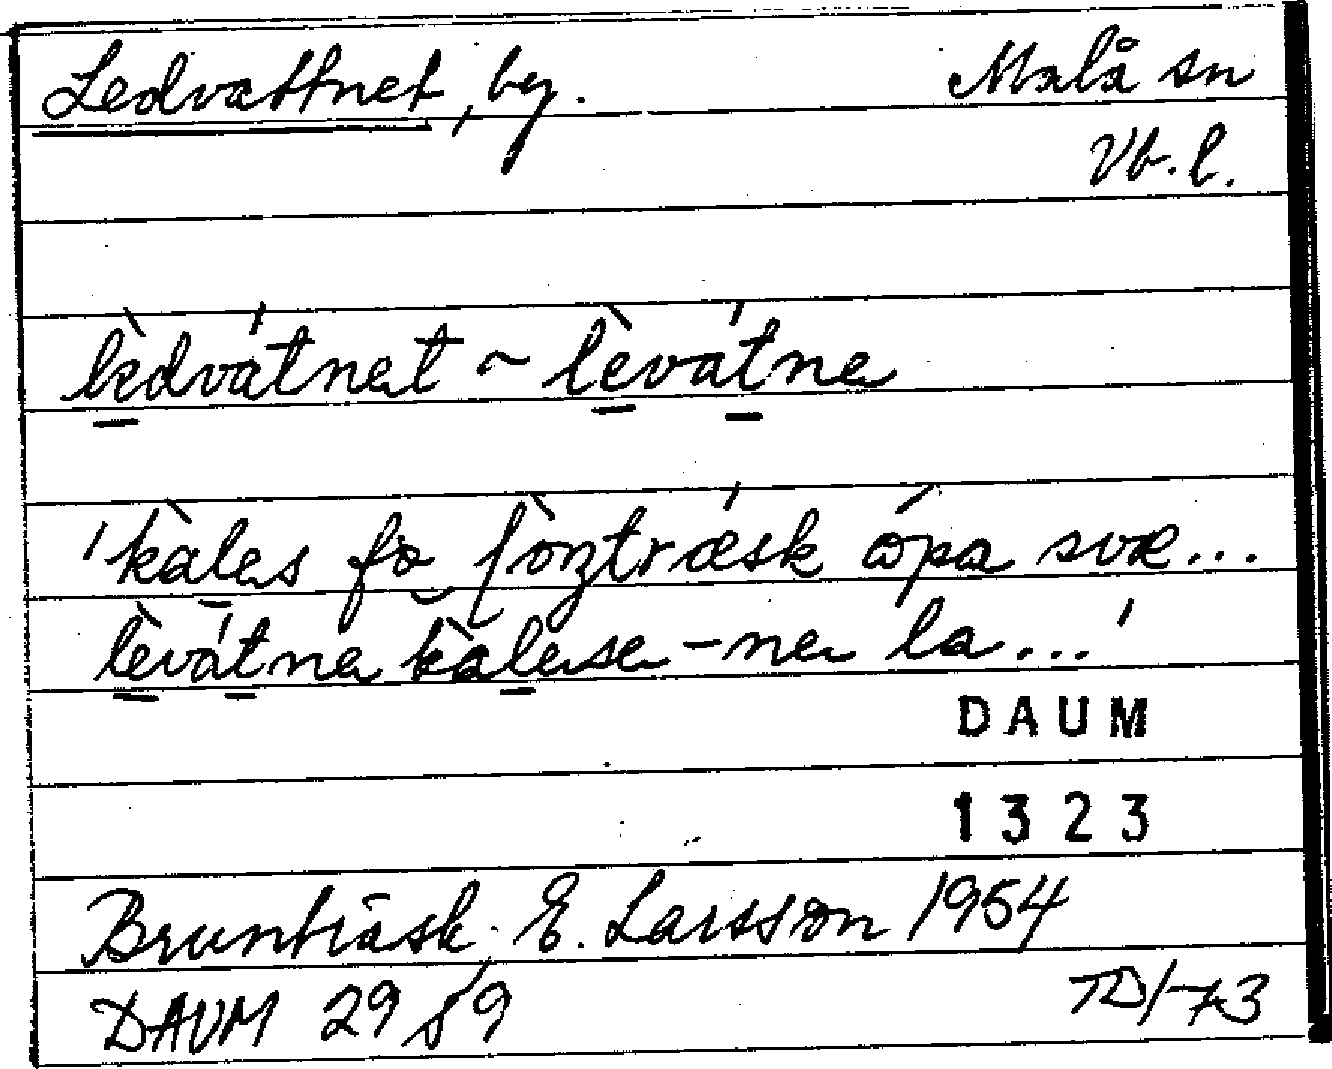 Ledvattnet, by. Malå sn
Vb. l.
lèdvátnet ~ lèvátne
'kàles fo fòʀtræsk ópa svæ...
lèvátne kàlese-ne la...'
DAUM
1323
Brunträsk. E. Larsson 1954
DAUM 29 s 9
TD/73